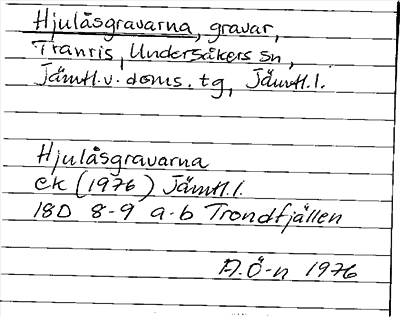 Hjulåsgravarna, gravar,
Tranris, Undersåkers sn,
Jämtl.v. doms. tg, Jämtl.l.
Hjulåsgravarna
ek (1976) Jämtl.l.
18D 8-9 a-b Trondfjällen
A.Ö-n 1976